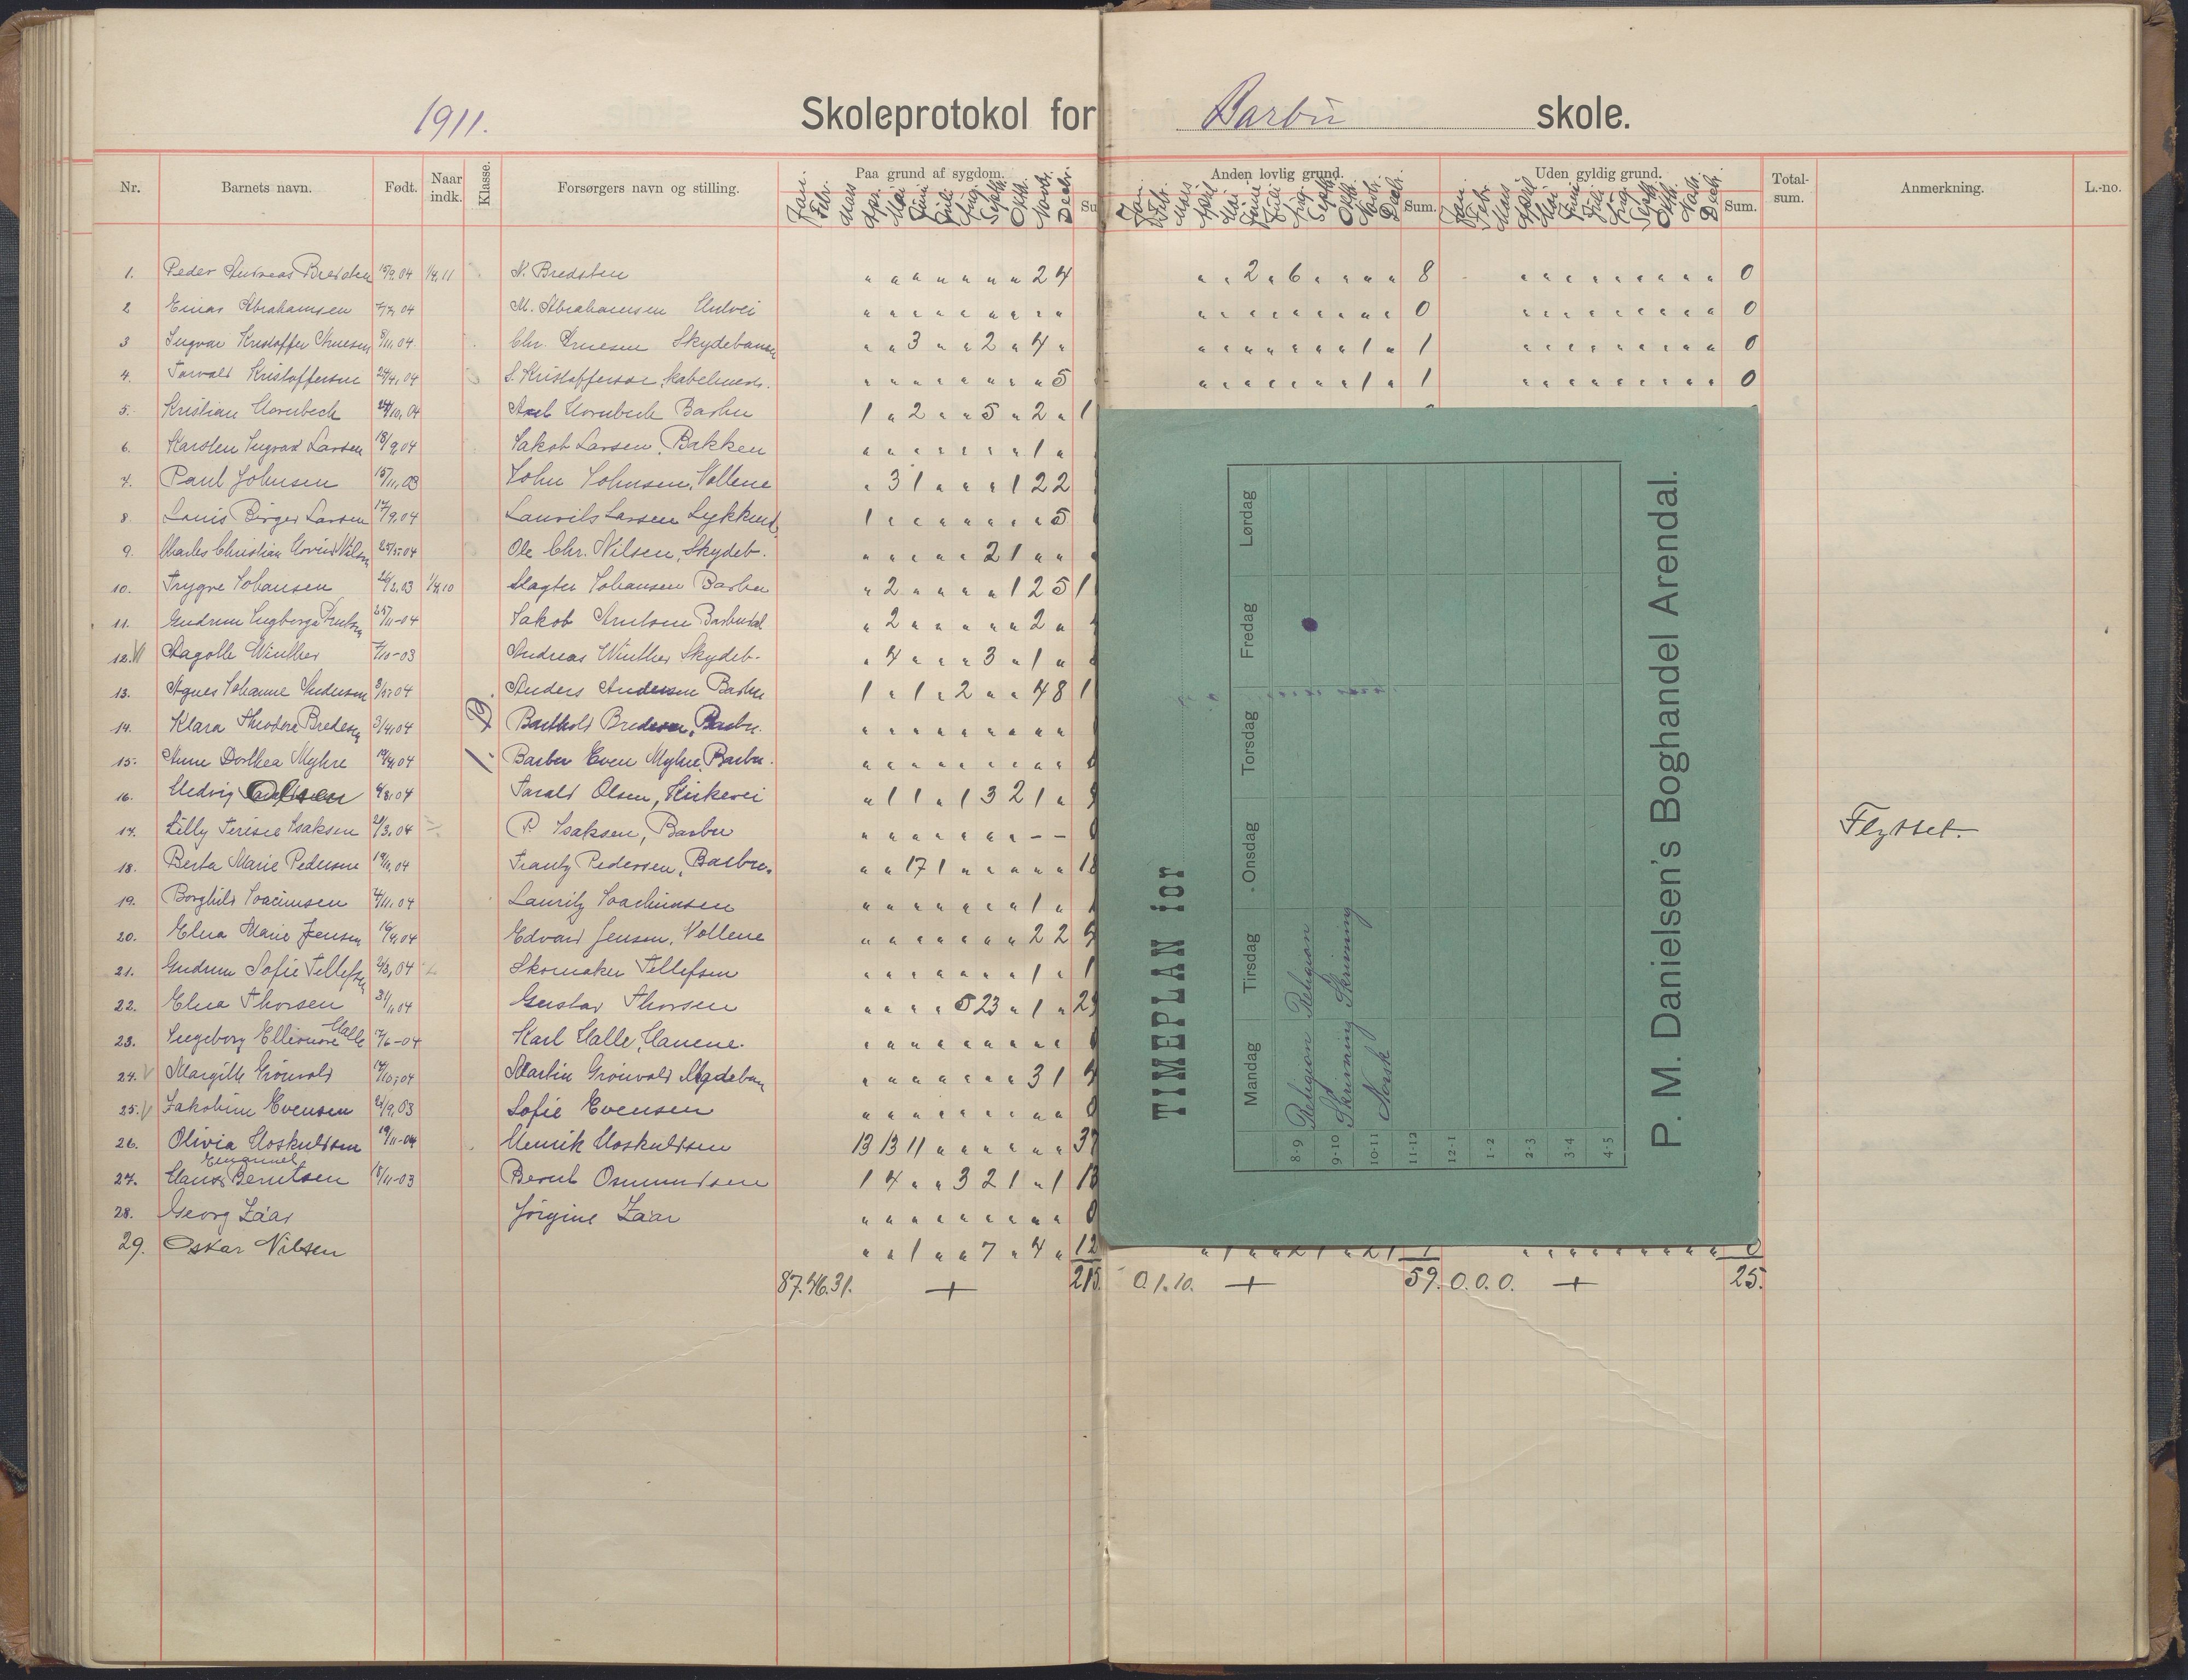 1911.
Skoleprotokol for Barbu skole.
Nr. Barnets navn. Født. Naar indk. Klasse. Forsørgers navn og stilling. Paa grund af sygdom. Su Anden lovlig grund. Sum. Uden gyldig grund. Sum. Total-sum. Anmerkning. L.-no.
1. Peder Andreas Bredsten 15/9.04 1/4.11 N. Bredsten " " " " " " " 2 4 " " 2 " 6 " " " " 8 " " " " " " " " " 0
2 Einar Abrahamsen 04 M. Abrahamsen " " " " " " " " " " " " " " " " " " 0 " " " " " " " " " 0
3 Ingvar Kristoffer 8/11.04 Chr. Skydebanen " " 3 " " 2 " 4 " " " " " " " " 1 " 1 " " " " " " " " " 0
4. Torvald Kristoffersen 24/4.04 S. Kristoffersen, " " " " " " " " 5 " " " " " " " 1 " 1 " " " " " " " " " 0
5. Kristian Hornbeck 24/10.04 Axel Hornbeck Barbu 1 " 2 " " 5 " 2 " 1
6. Karsten Ingvar Larsen 18/9.04 Jakob Larsen, Bakken " " " " " " " 1 "
7. Paul Johnsen 15/11.03 John Johnsen, Vollene " 3 1 " " " 1 2 2
8. Louis Birger Larsen 17/9.04 Laurits Larsen 1 " " " " " " " 5
9. Charles Christian Nilsen 25/5.04 Ole Chr. Nilsen, Skydeb. " " " " " 2 1 " "
10. Trygve Johansen 26/2.03 1/4.10 Slagter Johansen Barbu " 2 " " " " 1 2 5 1
11. Gudrun Ingborga 11-04 Jakob " 2 " " " " " 2 "
12. Aagoth Winther /10-03 Andreas Winther Skydeb. " 4 " " " 3 " 1 "
13. Agnes Johanne Andersen 3/5.04 Anders Andersen Barbu 1 " 1 " 2 " " 4 8 1
14. Klara Theodore Bredesen 3/4.04 1. B. Barthold Bredesen, Barbu. " " " " " " " " "
15. Anne Dorthea Myhre 04 Barber Even Myhre, Barbu. " " " " " " " " "
16. Hedvig Olsen 04 Tarald Olsen, Kirkevei " 1 1 " 1 3 2 1 "
17. Lilly Terisie Isaksen /3.04 P. Isaksen, Barbu " " " " " " " - - Flyttet
18. Berta Marie Pedersen 04 Frantz Pedersen, Barbu. " " 17 1 " " " " " 18
19. Borghild Joacimsen /11.04 Lauritz Joachimsen " " " " " " " 1 "
20. Elna Marie Jensen 04 Edvard Jensen, Vollene " " " " " " " 2 2
21. Gudrun Sofie Tellefsen /3.04 Skomaker Tellefsen " " " " " " " 1 " 1
22. Elna Thorsen 31/1.04 Gustav Thorsen " " " " 5 23 " 1 " 29
23. Ingeborg Ellionore Halle /6-04 Karl Halle, " " " " " " " " "
24. Margith Grönvold /10.04 Martin Grönvold " " " " " " " 3 1
25. Jakobine Evensen /9.03 Sofie Evensen " " " " " " " " " 0
26. Olivia Hoskuldsen 19/11-04 Henrik Hoskuldsen 13 13 11 " " " " " " 37
27. Hans Emanuel Berntsen /11-03 Bernt Osmundsen 1 4 " " 3 2 1 " 1
28. Georg Zäar Jörgine Zäar " " " " " " " " " 0
29. Oskar Nilsen " " 1 " " 7 " 4 " 12
87.46.31. + 215 0.1.10. + 59. 0.0.0. + 25.
TIMEPLAN for
Mandag Tirsdag Onsdag Torsdag Fredag Lørdag
8-9 Religion Religion
9-10 Skrivning Skrivning
10-11 Norsk
11-12
12-1
1-2
2-3
3-4
4-5
P. M. Danielsen's Boghandel Arendal.